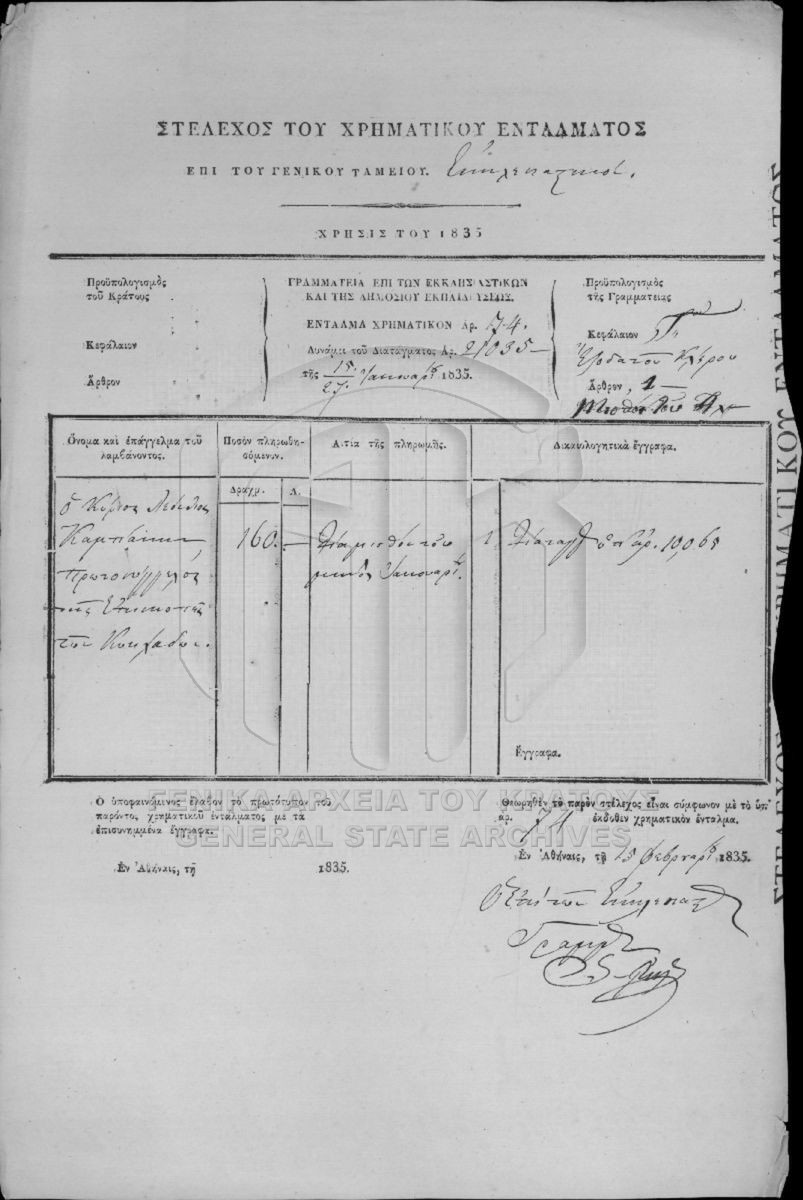 ΣΤΕΛΕΧΟΣ ΤΟΥ ΧΡΗΜΑΤΙΚΟΥ ΕΝΤΑΛΜΑΤΟΣ
ΕΠΙ ΤΟΥ ΓΕΝΙΚΟΥ ΤΑΜΕΙΟΥ.
ΧΡΗΣΙΣ ΤΟΥ 1835
Προϋπολογισμὸς
τοῦ Κράτους
Κεφάλαιον
Ἄρθρον
ΓΡΑΜΜΑΤΕΙΑ ΕΠΙ ΤΩΝ ΕΚΚΛΗΣΙΑΣΤΙΚΩΝ
ΚΑΙ ΤΗΣ ΔΗΜΟΣΙΟΥ ΕΚΠΑΙΔΕΥΣΕΩΣ.
ΕΝΤΑΛΜΑ ΧΡΗΜΑΤΙΚΟΝ ἀρ. 74.
Δυνάμει τοῦ Διατάγματος Ἀρ. 21035
τῆς 15/27 Ἰανουαρ 1835.
Προϋπολογισμὸς
τῆς Γραμματείας
Κεφάλαιον
Ἔξοδα τοῦ Κλήρου
Ἄρθρον, 1
Μισθοὶ τῶν
Ὄνομα καὶ ἐπάγγελμα τοῦ
λαμβάνοντος.
Ποσὸν πληρωθη-
σόμενον.
Αἰτία τῆς πληρωμῆς.
Δικαιολογητικὰ ἔγγραφα.
Δραχμ. Λ.
ὁ Κύριος
πρωτοσύγγελος
τῆς Ἐπισκοπῆς
τῶν Κυκλάδων.
160.
Διὰ μισθὸν τοῦ
μηνὸς Ἰανουαρ.
1 Διαταγὴ ὑπ' ἀρ. 10,065
Ἔγγραφα.
Ὁ ὑποφαινόμενος ἔλαβον τὸ πρωτότυπον τοῦ
παρόντος χρηματικοῦ ἐντάλματος μὲ τὰ
ἐπισυνημμένα ἔγγραφα.
Ἐν Ἀθήναις, τῇ 1835.
Θεωρηθὲν τὸ παρὸν στέλεχος εἶναι σύμφωνον μὲ τὸ ὑπ'
ἀρ. 74 ἐκδοθὲν χρηματικὸν ἔνταλμα.
Ἐν Ἀθήναις, τῇ 15 φεβρουαρ 1835.
Ὁ ἐπὶ τῶν Ἐκκλησιασ
Γραμμ
ΓΕΝΙΚΑ ΑΡΧΕΙΑ ΤΟΥ ΚΡΑΤΟΥΣ
GENERAL STATE ARCHIVES
ΣΤΕΛΕΧΟΣ ΧΡΗΜΑΤΙΚΟΥ ΕΝΤΑΛΜΑΤΟΣ